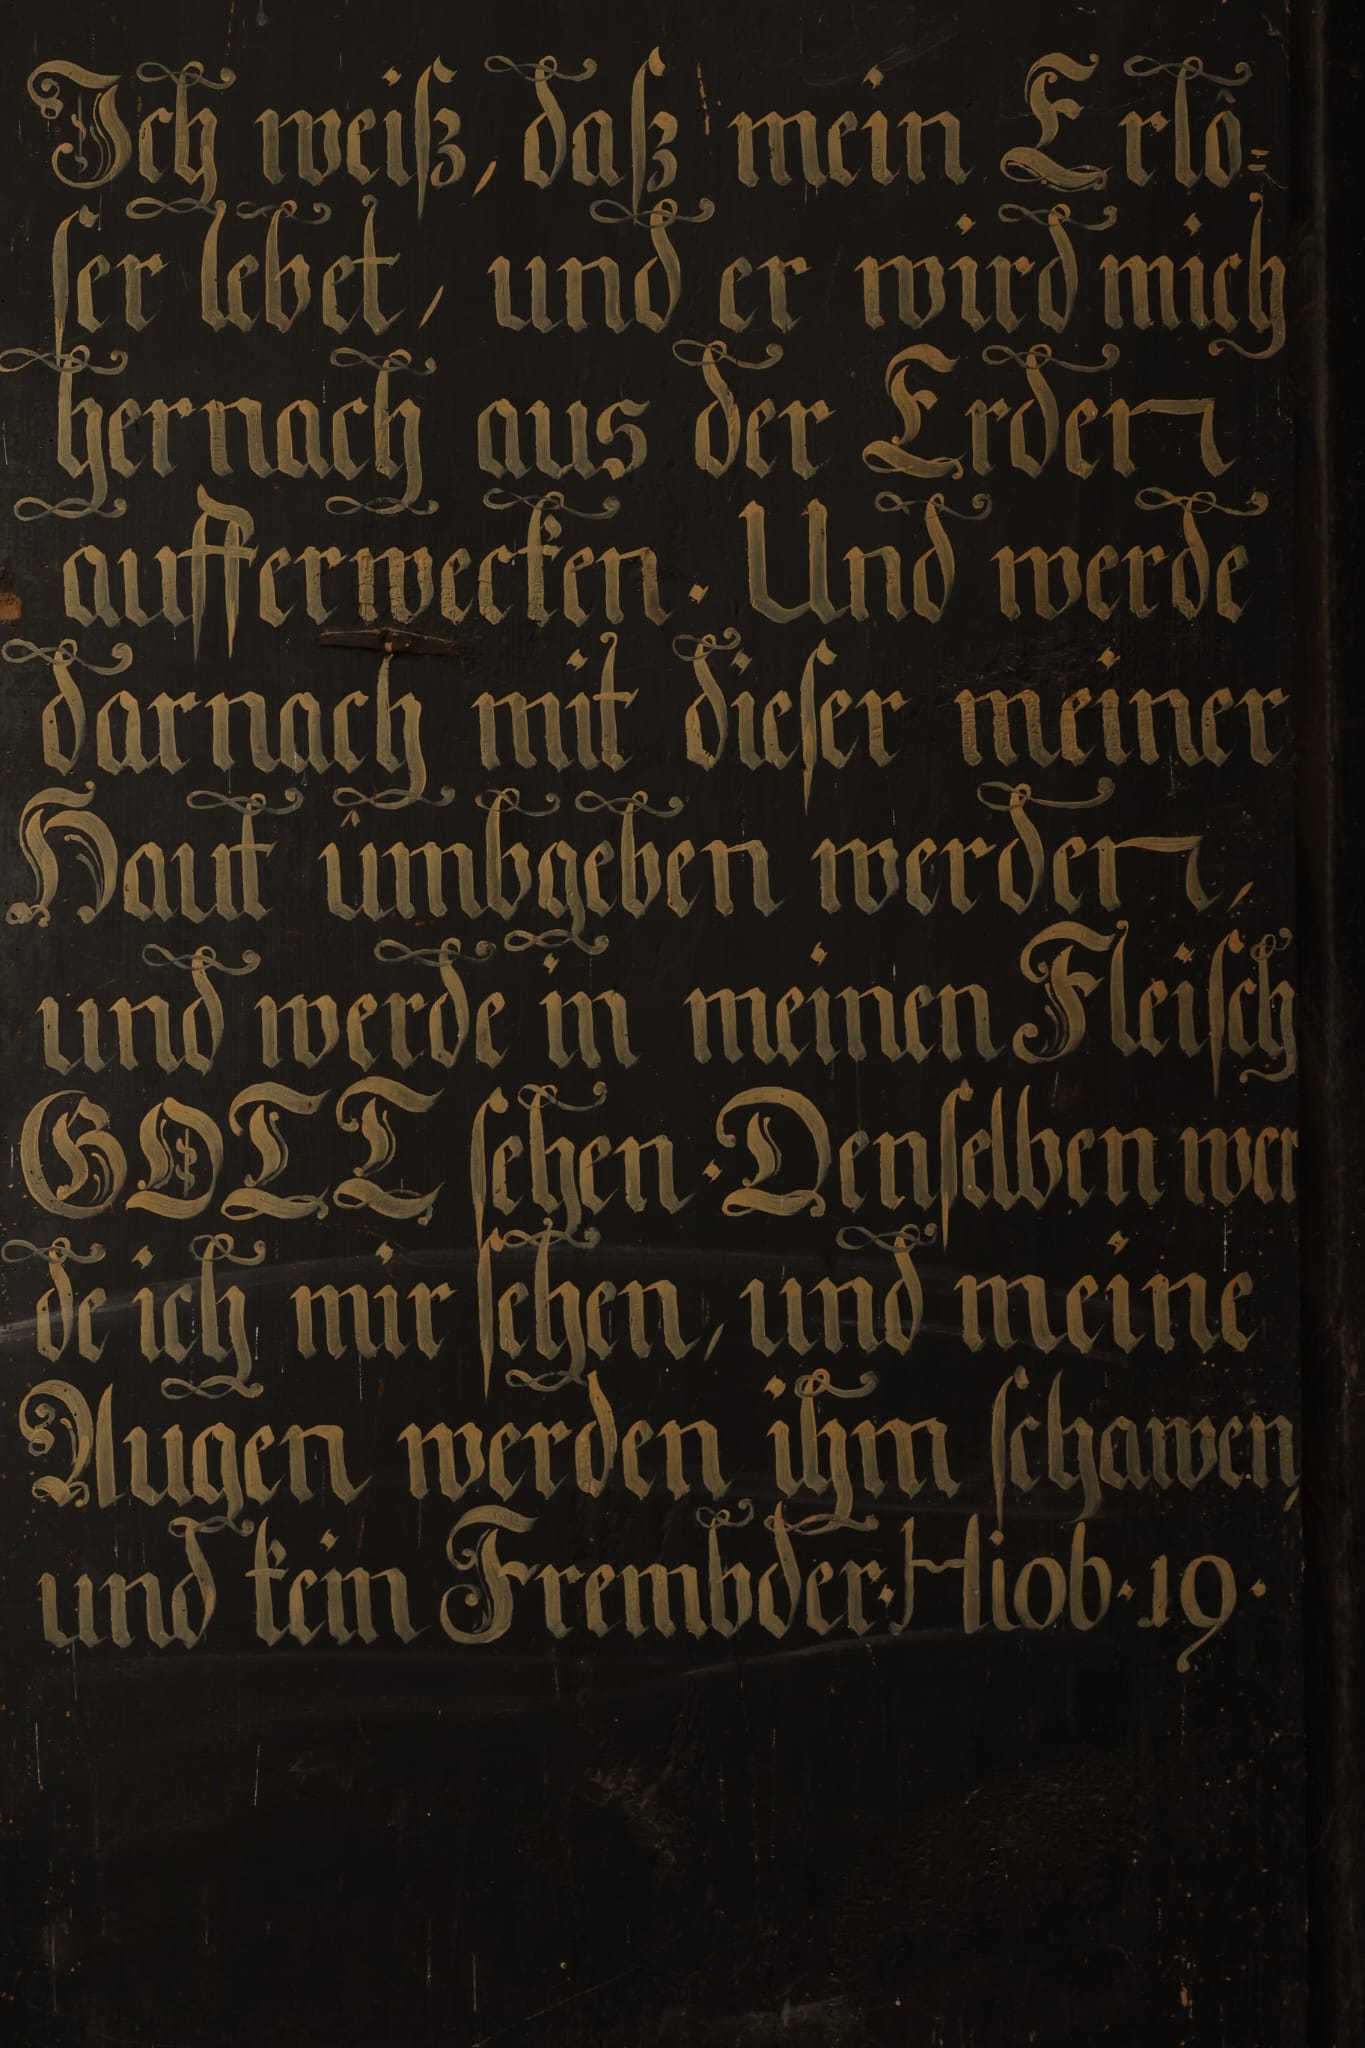 Ich weiß, daß mein Erlô=
ser lebet, und er wird mich
hernach aus der Erden
aufferwecken. Und werde
darnach mit dieser meiner
Haut ûmbgeben werden,
und werde in meinen Fleisch
GOTT sehen. Denselben wer
de ich mir sehen, und meine
Augen werden ihm schawen,
und kein Frembder. Hiob. 19.